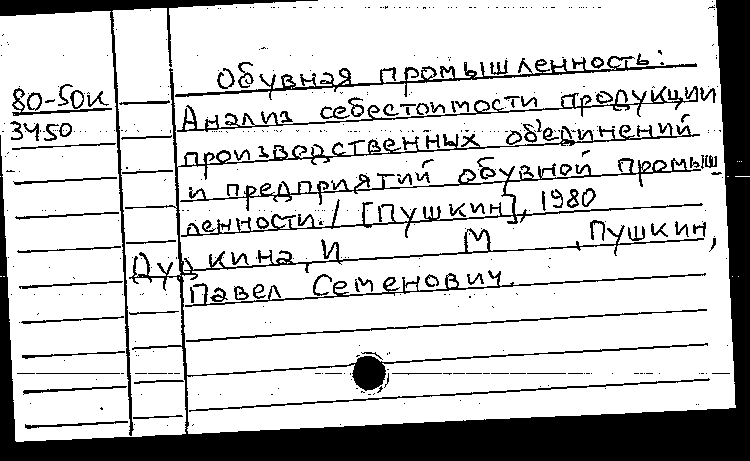 Обувная промышленность:
80-50к
3450
Анализ себестоимости продукции
производственных об'единений
и предприятий обувной промыш
ленности./ [Пушкин], 1980
Дудкина, И М , Пушкин,
Павел Семенович.